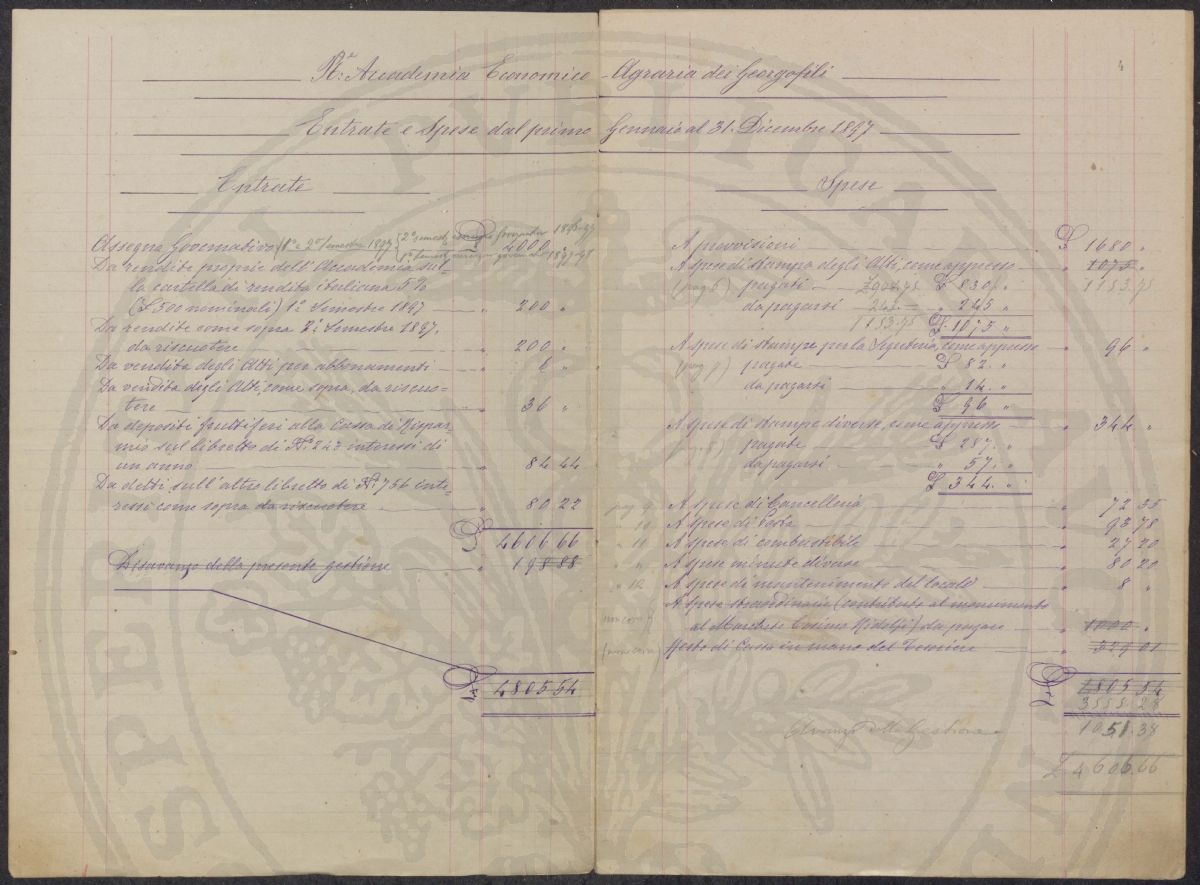 4
R.e Accademia Economico-Agraria dei Georgofili
Entrate e Spese dal primo Gennaio al 31. Dicembre 1897
Entrate
Assegno Governativo (1° e 2° Semestre 1897) £ 4000 "
2° semest. esercizio finanziario 1896-97
1° semest. esercizio finanziario 1897-98
Da rendite proprie dell'Accademia sul-
la cartella di rendita italiana 5%
(£ 500 nominali) 1° Semestre 1897 " 200 "
Da rendite come sopra 2° Semestre 1897,
da riscuotere " 200 "
Da vendita degli Atti per abbonamenti " 6 "
Da vendita degli Atti, come sopra, da riscuo-
tere " 36 "
Da depositi fruttiferi alla Cassa di Rispar-
mio sul libretto di N° 243 interessi di
un anno " 84 44
Da detti sull'altro libretto di N° 756 inte-
ressi come sopra da riscuotere " 80 22
£ 4606 66
Disavanzo della presente gestione " 198 88
£ 4805 54
Spese
A provvisioni £ 1680 "
A spese di stampa degli Atti, come appresso " 1075 "
1153.75
(pag 6) pagati £ 908.75 £ 830 "
da pagarsi 245.— " 245 "
1153.75 £ 1075 "
A spese di stampe per la Segreteria, come appresso " 96 "
(pag 7) pagate £ 82. "
da pagarsi " 14. "
£ 96 "
A spese di stampe diverse, come appresso " 344 "
(pag. 8) pagate £ 287. "
da pagarsi " 57. "
£ 344. "
pag 9 A spese di Cancelleria " 72 35
" 10 A spese di Posta " 93 78
" 11 A spese di combustibile " 27 20
" " A spese minute diverse " 80 20
" 12 A spese di mantenimento del locale " 8 "
A spese straordinarie (contributo al monumento
al Marchese Cosimo Ridolfi) da pagare " 1000 "
Resto di Cassa in mano del Tesoriere " 329 01
£ 4805 54
3555 28
Avanzo della Gestione 1051.38
£ 4606.66